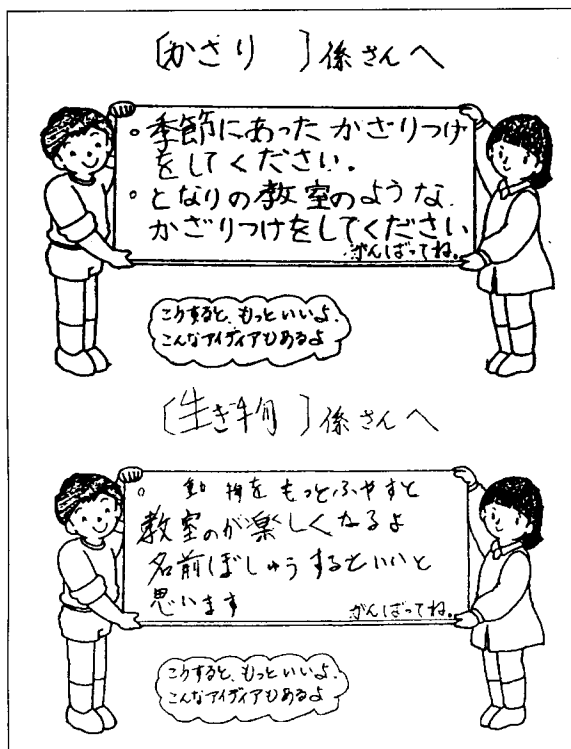 〔かざり 〕係さんへ
○季節にあったかざりつけ
をしてください。
○となりの教室のような
かざりつけをしてください
がんばってね。
こうすると、もっといいよ。
こんなアイディアもあるよ
〔生き物 〕係さんへ
○ 動物をもっとふやすと
教室のが楽しくなるよ
名前ぼしゅうするといいと
思います
がんばってね。
こうすると、もっといいよ。
こんなアイディアもあるよ